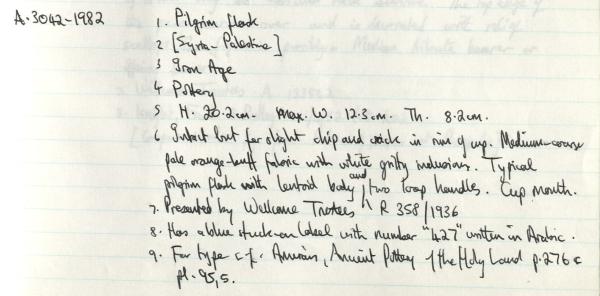 A.3042-1982
1. Pilgrim flask
2 [Syria-Palestine]
3 Iron Age
4 Pottery
5 H. 20.2cm. Max. W. 12.3cm. Th. 8.2cm.
6 Intact but for slight chip and crack in rim of cup. Medium-coarse
pale orange-buff fabric with white gritty inclusions. Typical
pilgrim flask with lentoid body and two loop handles. Cup mouth.
7. Presented by Wellcome Trustees R 358/1936
8. Has a blue stuck-on label with number "427" written in Arabic.
9. For type c.f. Amiran, Ancient Pottery of the Holy Land p.276 &
pl. 95,5.